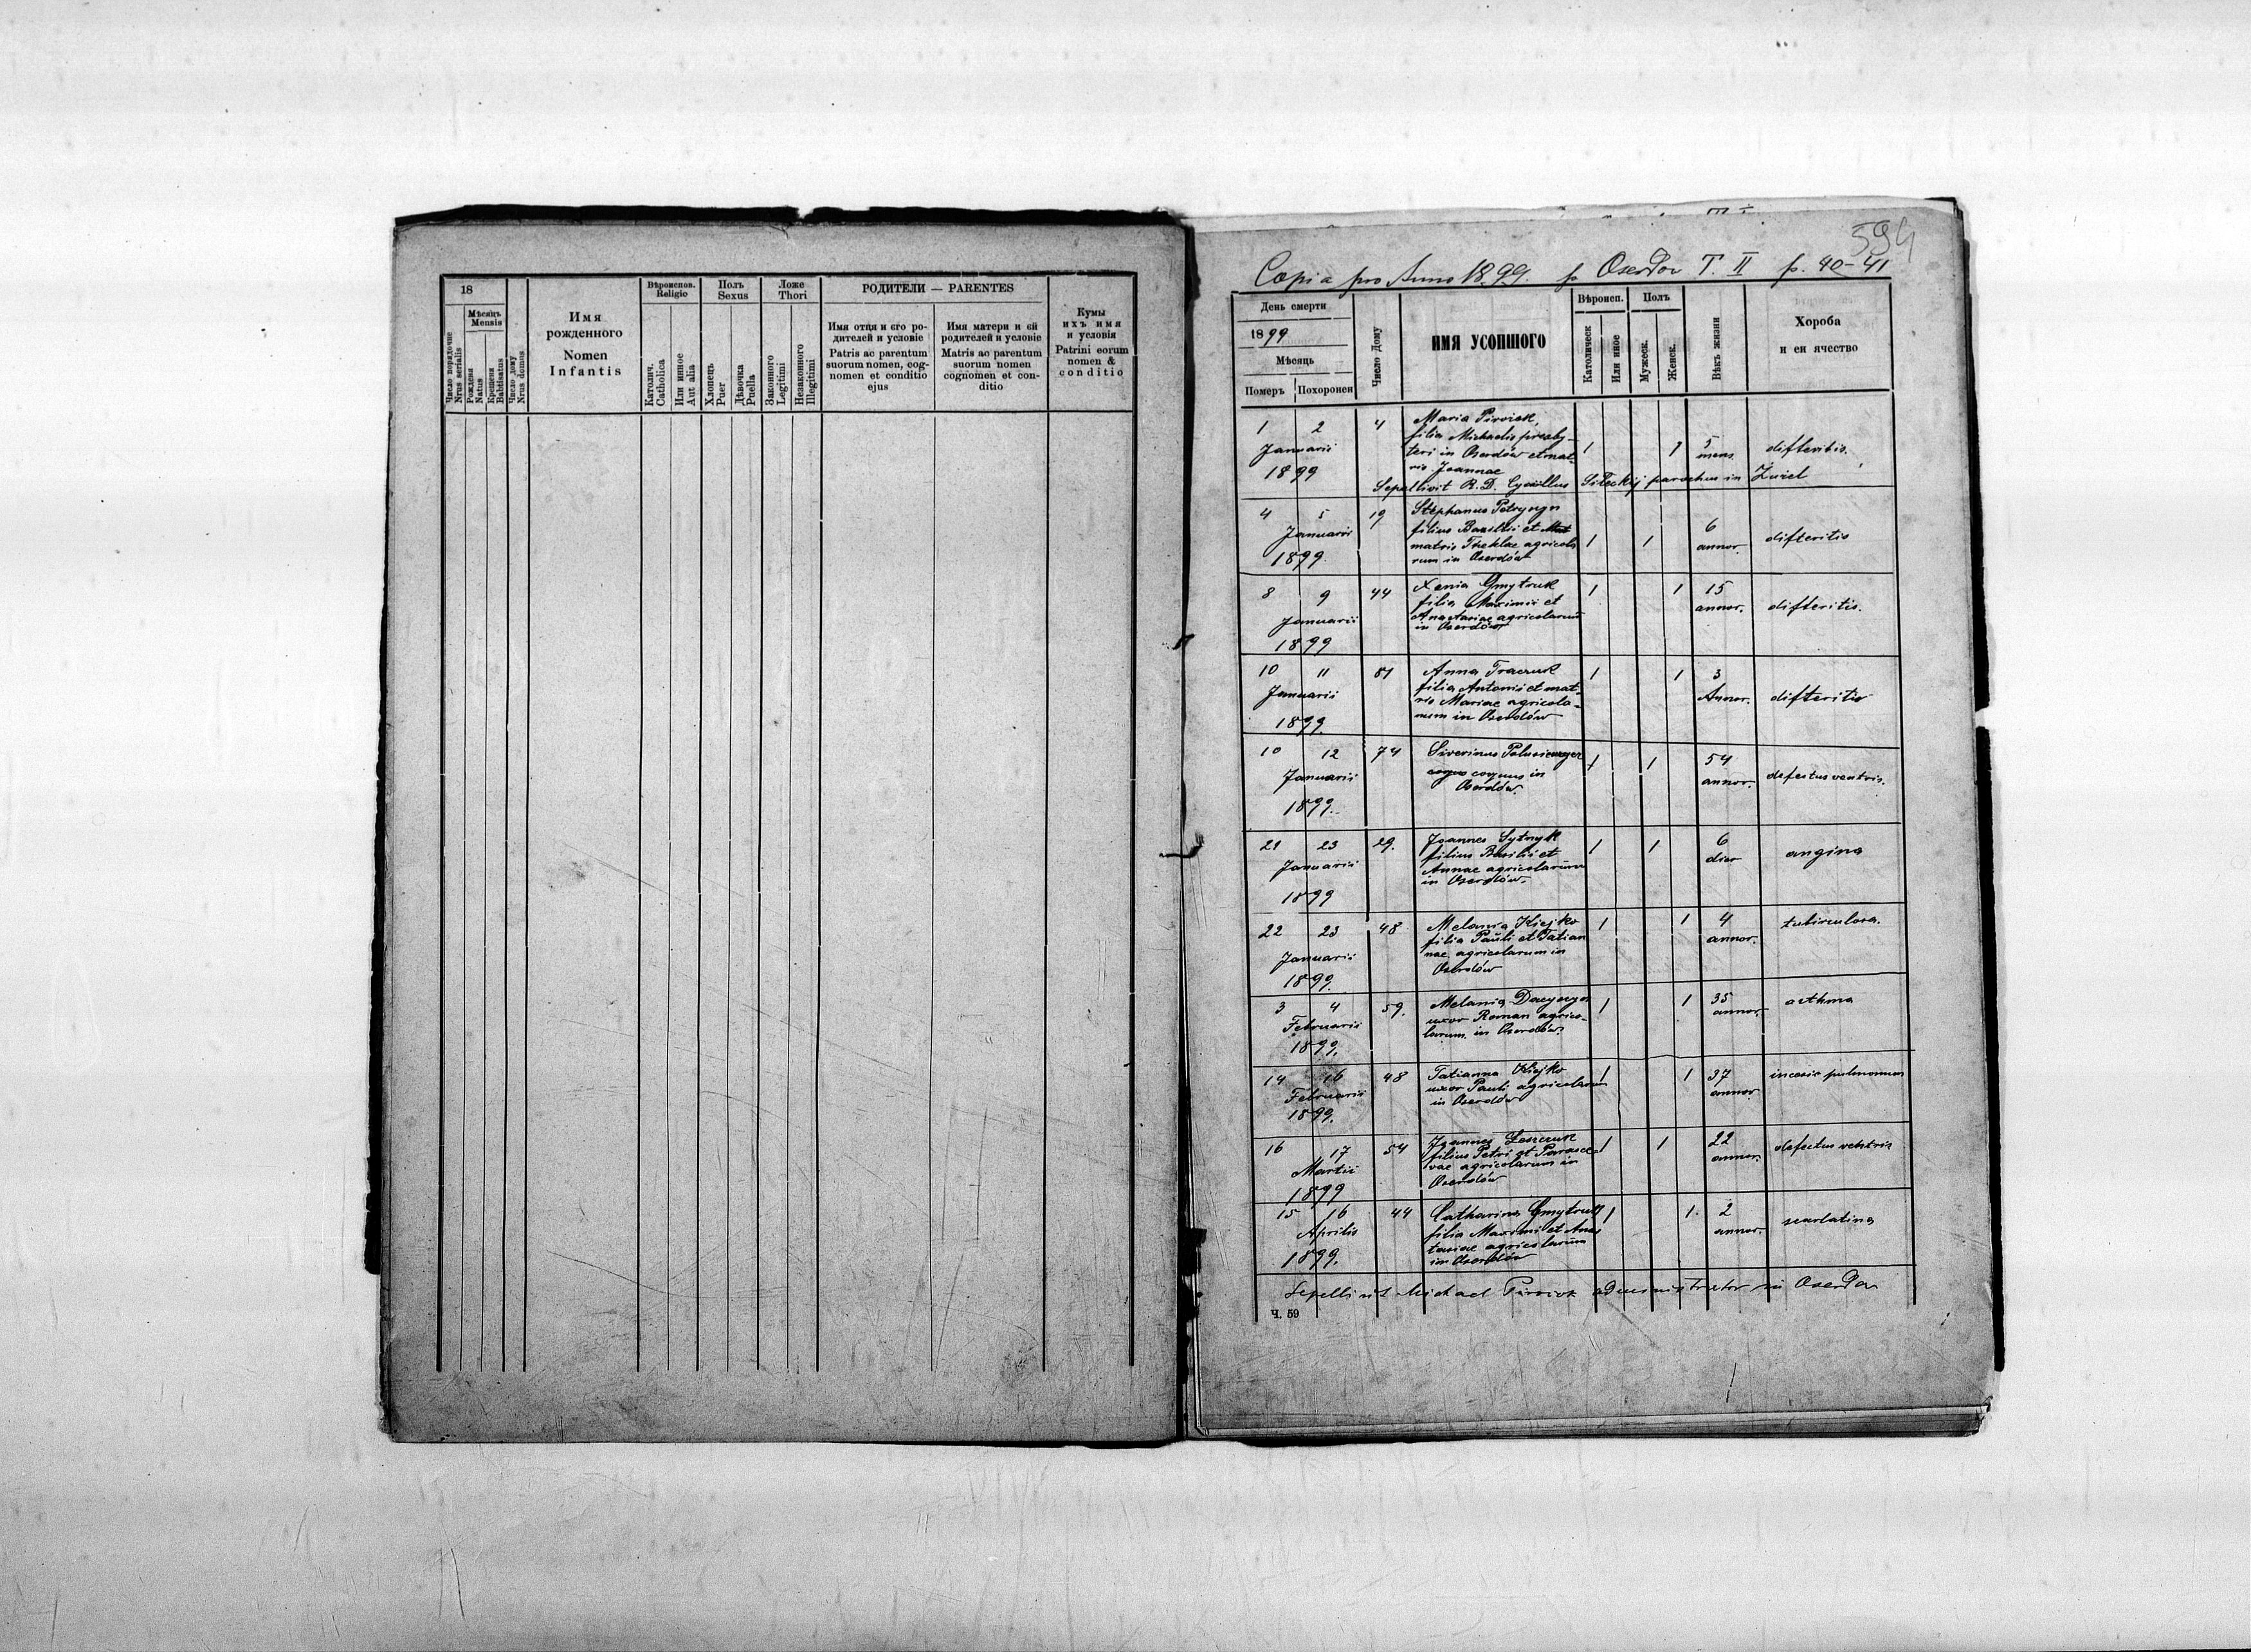 18
Мѣсяць
Mensis
Число порядочне
Nrus serialis
Рожденя
Natus
Крщеня
Babtisatus
Число дому
Nrus domus
Имя
рожденного
Nomen
Infantis
Вѣроиспов.
Religio
Католич.
Catholica
Или иное
Aut alia
Полъ
Sexus
Хлопець
Puer
Дѣвочка
Puella
Ложе
Thori
Законного
Legitimi
Незаконного
Illegitimi
РОДИТЕЛИ — PARENTES
Имя отця и єго ро-
дителей и условіє
Patris ac parentum
suorum nomen, cog-
nomen et conditio
ejus
Имя матери и єй
родителей и условіє
Matris ac parentum
suorum nomen
cognomen et con-
ditio
Кумы
ихъ имя
и условія
Patrini eorum
nomen &
conditio
594
Copia pro Anno 1899. p Oserdow T. II p. 40-41
День смерти
1899
Мѣсяць
Померъ Похоронен
Число дому
ИМЯ УСОПШОГО
Вѣроисп.
Католическ
Или иное
Полъ
Мужеск.
Женск.
Вѣкъ жизни
Хороба
и еи ячество
1 2 4 Maria Pirożek,
filia Michaelis presby-
teri in Oserdów et mat-
ris Joannae
Januarii 1 1 5 mens. difteritis.
1899
Sepelivit R. D. Cyrillus Siteckij parochus in Żużel
4 5 19 Stephanus Petryszyn
filius Basilii et
matris Theklae agricola
rum in Oserdów
Januarii 1 1 6 annor. difteritis
1899.
8 9 44 Xenia Gmytruk
filia Maximii et
Anastasiae agricolarum
in Oserdów
Januarii 1 1 15 annor. difteritis.
1899
10 11 81 Anna Traczuk
filia Antonii et mat-
ris Mariae agricola-
rum in Oserdów
Januarii 1 1 3 Annor. difteritis
1899.
10 12 74 Siverinus
in
Oserdów.
Januarii 1 1 54 annor. defectus ventris.
1899.
21 23 29. Joannes Sytnyk
filius Basilii et
Annae agricolarum
in Oserdów.
Januarii 1 1 6 dier angina
1899
22 23 48 Melania Kiejko
filia Pauli et Tatian
nae agricolarum in
Oserdów
Januarii 1 1 4 annor. tubirculosa.
1899.
3 4 59. Melania
uxor Roman agrico-
larum in Oserdów.
Februarii 1 1 35 annor. asthma
1899.
14 16 48 Tatianna Kiejko
uxor Pauli agricolarum
in Oserdów
Februarii 1 1 37 annor pulmonum
1899.
16 17 54 Joannes Leszczuk
filius Petri et Parasce
vae agricolarum in
Oserdów
Martii 1 1 22 annor. defectus ventris
1899
15 16 44 Catharina Gmytruk
filia Maximi et Anas
tasiae agricolarum
in Oserdów
Aprilis 1 1. 2 annor. scarlatina
1899.
Sepellivit Michael Pirożek administrator in Oserdow
Ч. 59